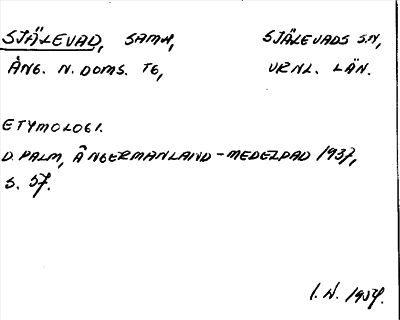 SJÄLEVAD, SAMH, SJÄLEVADS SN,
ÅNG. N. DOMS. TG, VRNL. LÄN.
ETYMOLOGI.
D. PALM, ÅNGERMANLAND - MEDELPAD 1937,
S. 57.
I. N. 1954.